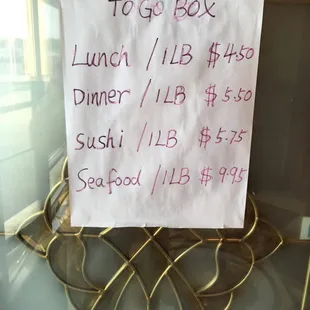 TO GO BOX
Lunch / 1LB $4.50
Dinner / 1LB $5.50
Sushi / 1LB $5.75
Seafood / 1LB $9.95